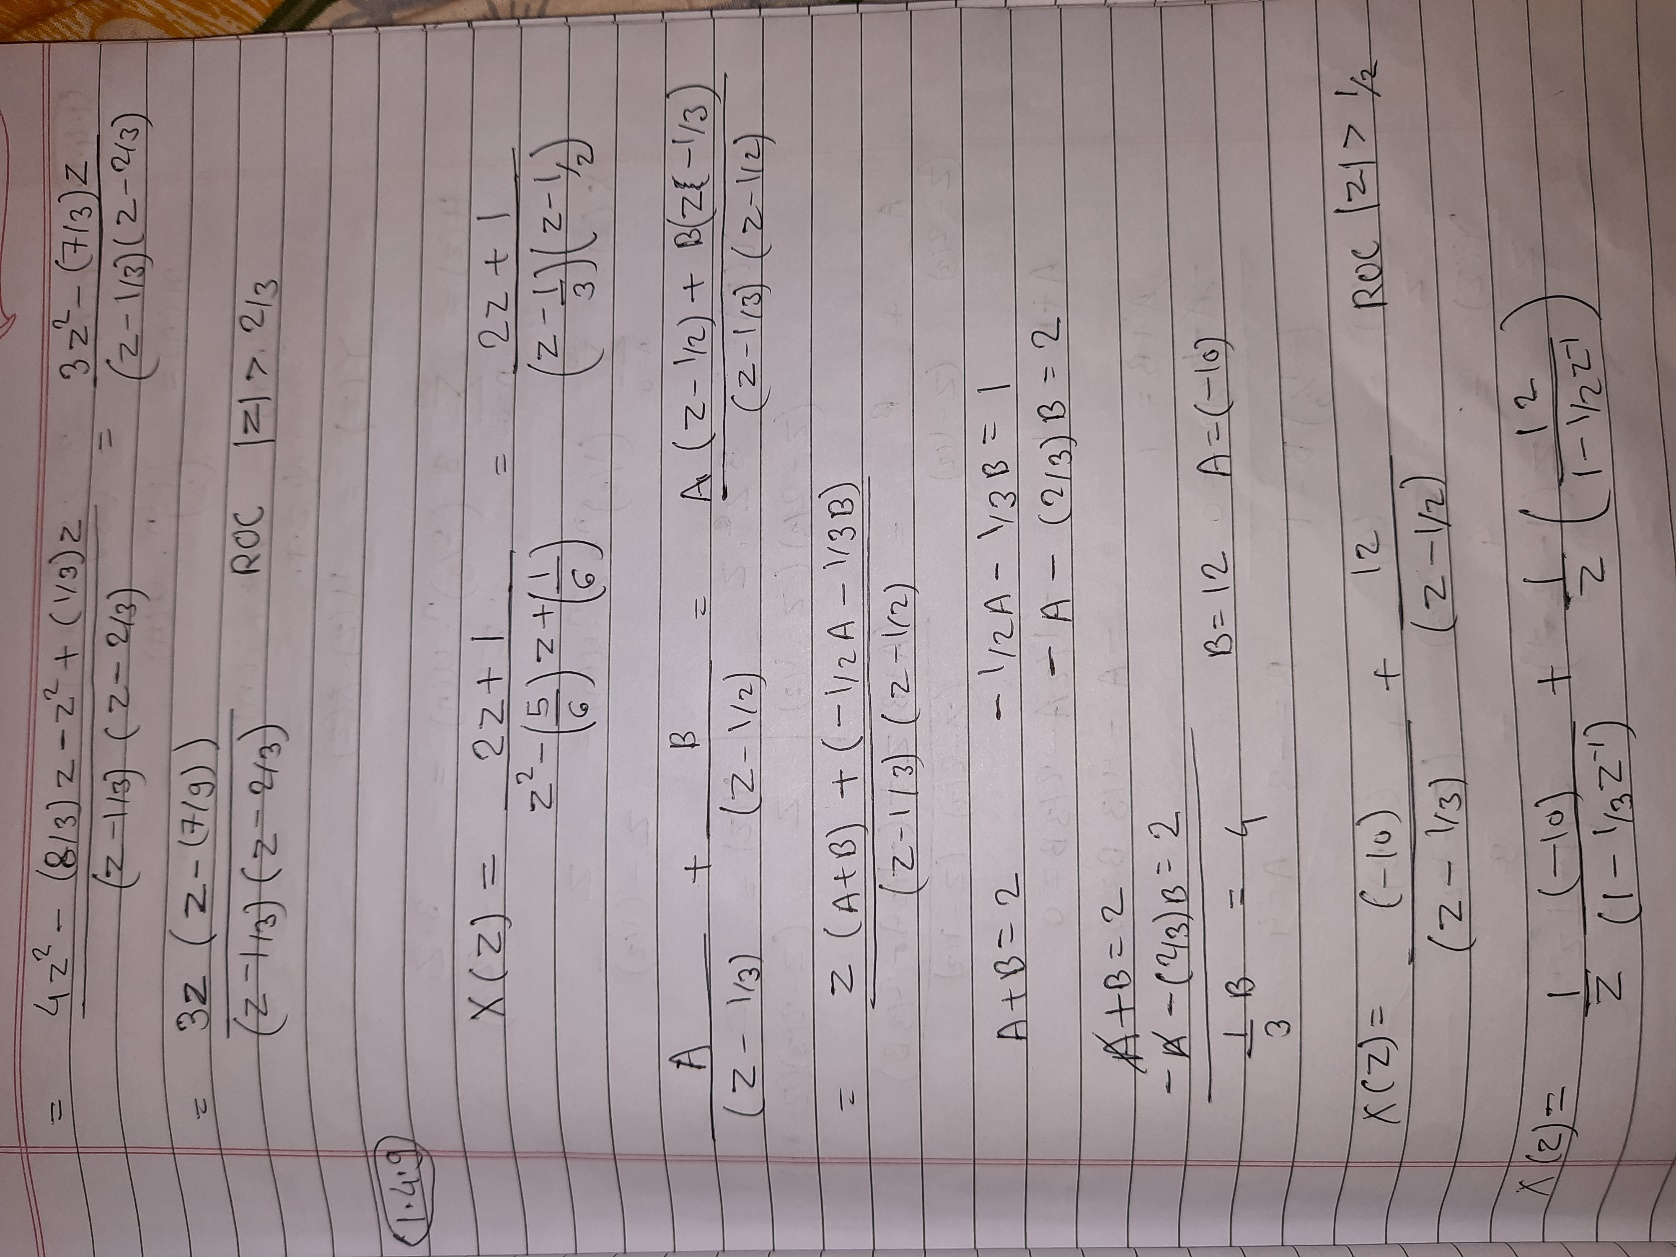 = 4z² - (8/3)z - z² + (1/3)z / (z - 1/3)(z - 2/3) = 3z² - (7/3)z / (z - 1/3)(z - 2/3)
= 3z (z - (7/9)) / (z - 1/3)(z - 2/3) ROC |z| > 2/3
1.4.9
X(z) = 2z + 1 / z² - (5/6)z + (1/6) = 2z + 1 / (z - 1/3)(z - 1/2)
A / (z - 1/3) + B / (z - 1/2) = A(z - 1/2) + B(z - 1/3) / (z - 1/3)(z - 1/2)
= z(A+B) + (-1/2A - 1/3B) / (z - 1/3)(z - 1/2)
A + B = 2 - 1/2A - 1/3B = 1
- A - (2/3)B = 2
A + B = 2
- A - (2/3)B = 2
1/3 B = 4 B = 12 A = (-10)
X(z) = (-10) / (z - 1/3) + 12 / (z - 1/2) ROC |z| > 1/2
X(z) = 1/z (-10) / (1 - 1/3z⁻¹) + 1/z (12 / (1 - 1/2z⁻¹))